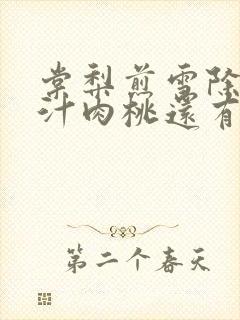 棠梨煎雪除
汁肉桃還有
第二个春天